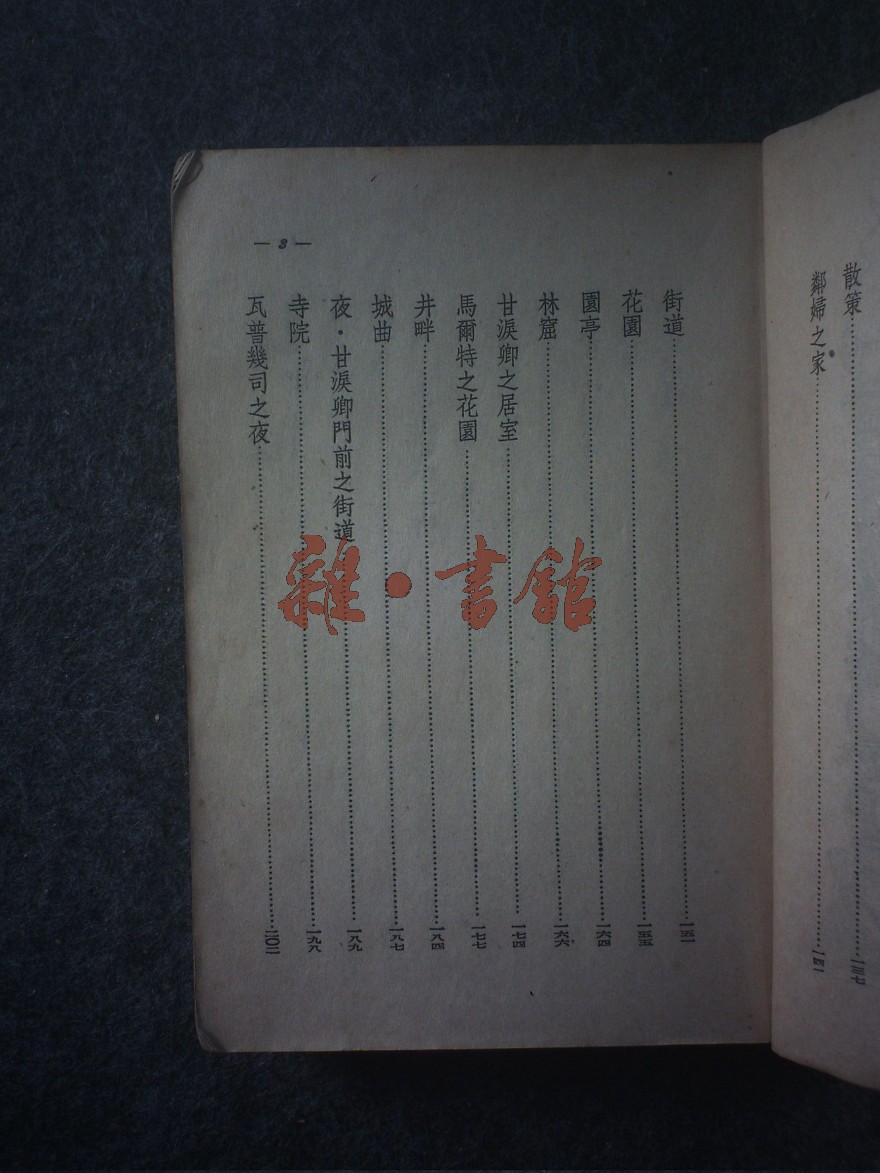 散策……一三七
鄰婦之家……一四一
— 3 —
街道……一五一
花園……一五五
園亭……一六四
林窟……一六六
甘淚卿之居室……一七四
馬爾特之花園……一七七
井畔……一八四
城曲……一八七
夜·甘淚卿門前之街道……一八九
寺院……一九八
瓦普幾司之夜……二〇二
雜·書館